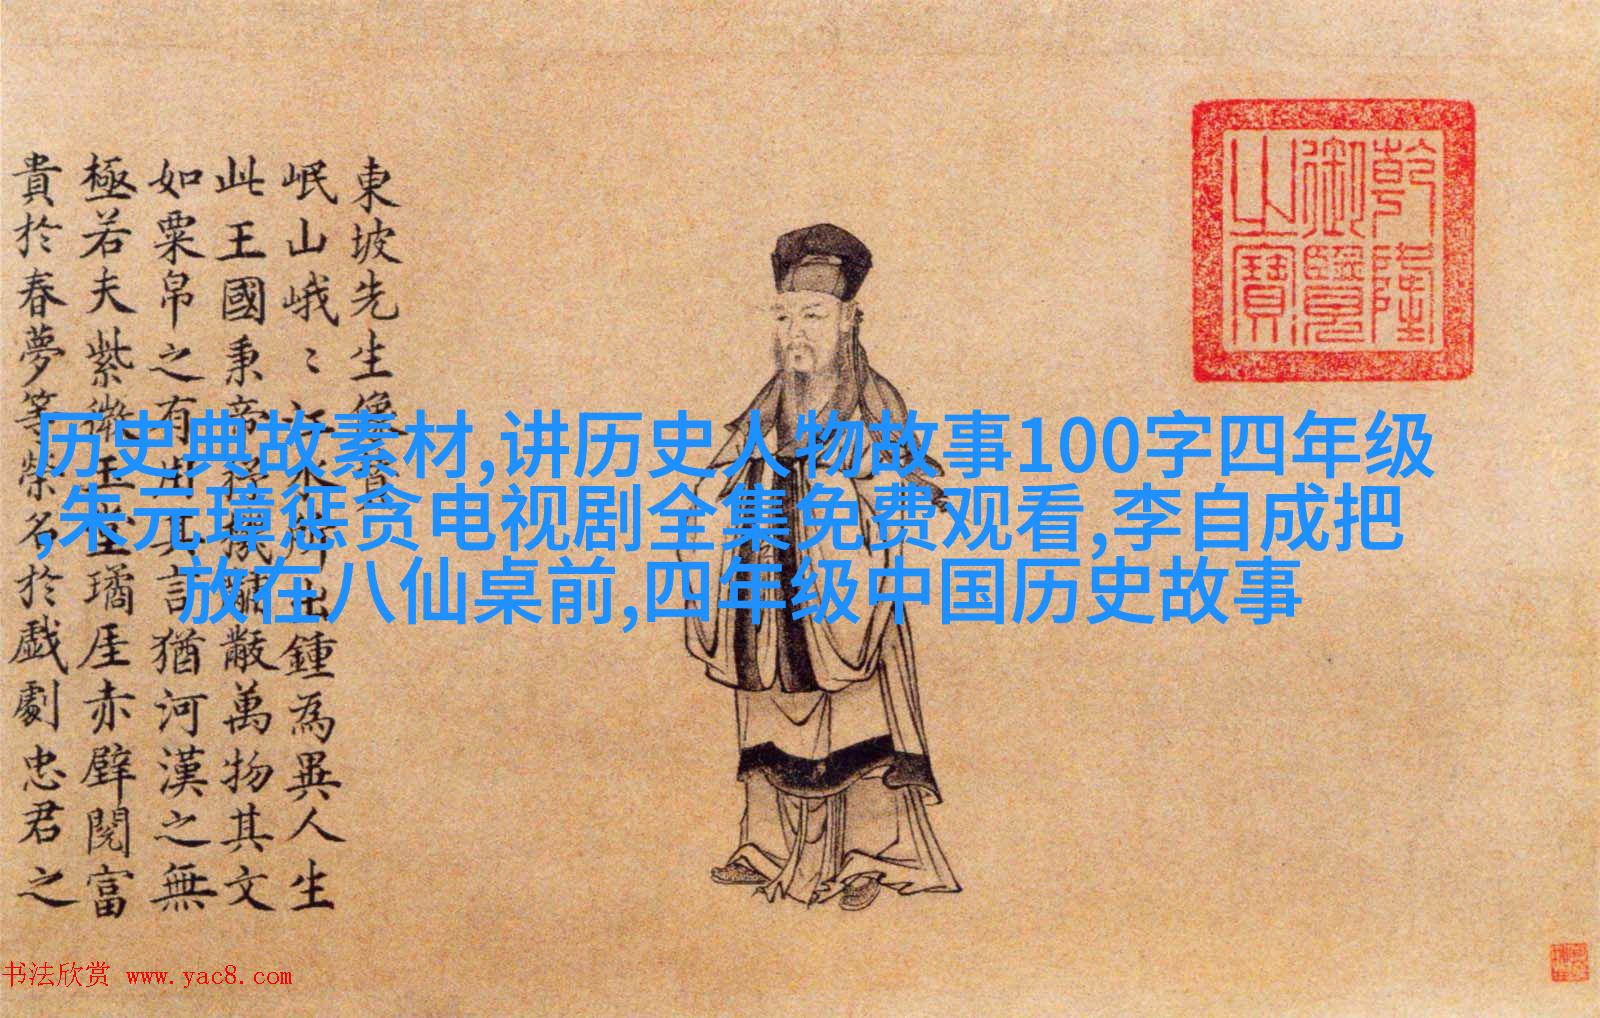 東坡先生像賛
岷山峨〻江水所出鍾為異人生
此王國秉帝杼機黼黻萬物其文
如粟帛之有用其言猶河漢之無
極若夫紫微玉堂璚厓赤壁閱富
貴於春夢等榮名於戲劇忠君之
乾隆
御覽
之寶
历史典故素材,讲历史人物故事100字四年级
,朱元璋惩贪电视剧全集免费观看,李自成把
放在八仙桌前,四年级中国历史故事
书法欣赏 www.yac8.com